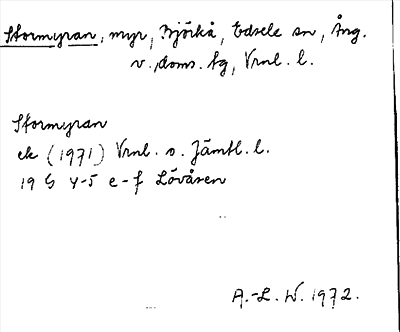 Stormyran, myr, Björkå, Edsele sn, Ång.
v. doms. fg, Vrnl. l.
Stormyran
ek (1971) Vrnl. o. Jämtl. l.
19 G 4-5 e-f Lövåsen
A.-L. W. 1972.